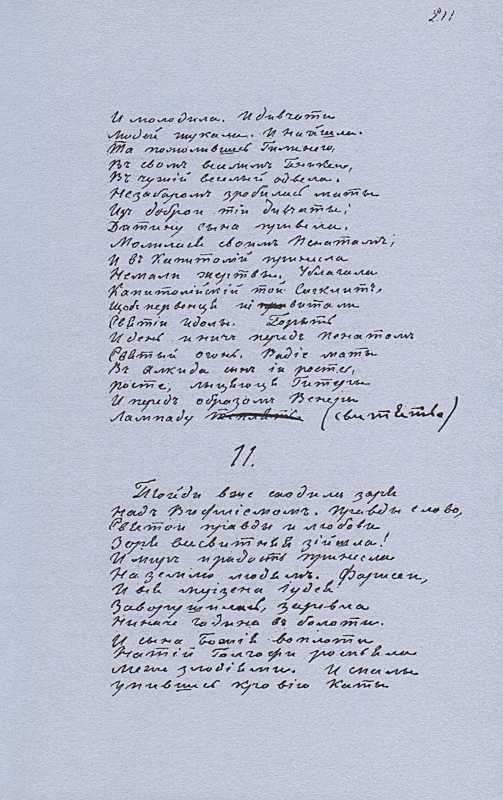 211
И молодила. И дивчати
Людей шукала. И найшла.
Та помолившись Гименею,
Въ своимъ веселимъ
Въ чужий веселый одвела.
Незабаромъ зробилась маты
Изъ доброи тіи дивчаты;
Дытину сына привела.
Молилася своимъ Пенатамъ;
И въ Капитолій принесла
Немали жертвы. Ублагала
Капитолійскій той Синклитъ,
Щобъ первенця іи витали
Святіи идолы. Горыть
И день и нич передъ пенатомъ
Святый огонь. Радіе маты
Въ Алкида сынъ іи росте,
росте, лыцяюця Гетеры
И передъ образомъ Венеры
Лампаду (свитять)
11.
Тойди вже сходила зоря
Надъ Вифліемомъ. Правды слово,
Святои правды и любови
Зоря всесвитняя зійшла!
И миръ и радость принесла
На землю людямъ. Фарисеи,
И вся мизена іудея
Заворушилась, заревла
Ниначе гадина въ болоти.
И сына Божія во плоти
На тій Голгофи роспьяла
Межи злодіями. И спалы
упившись кровію Каты